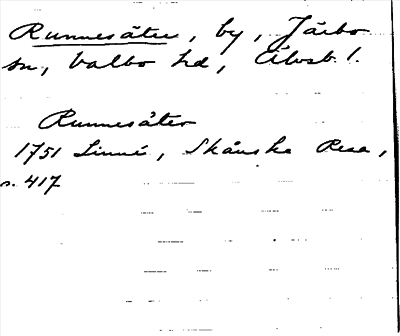 Runnesäter, by, Järbo
sn, Valbo hd, Älvsb. l.
Runnesäter
1751 Linné, Skånska Resa,
s. 417